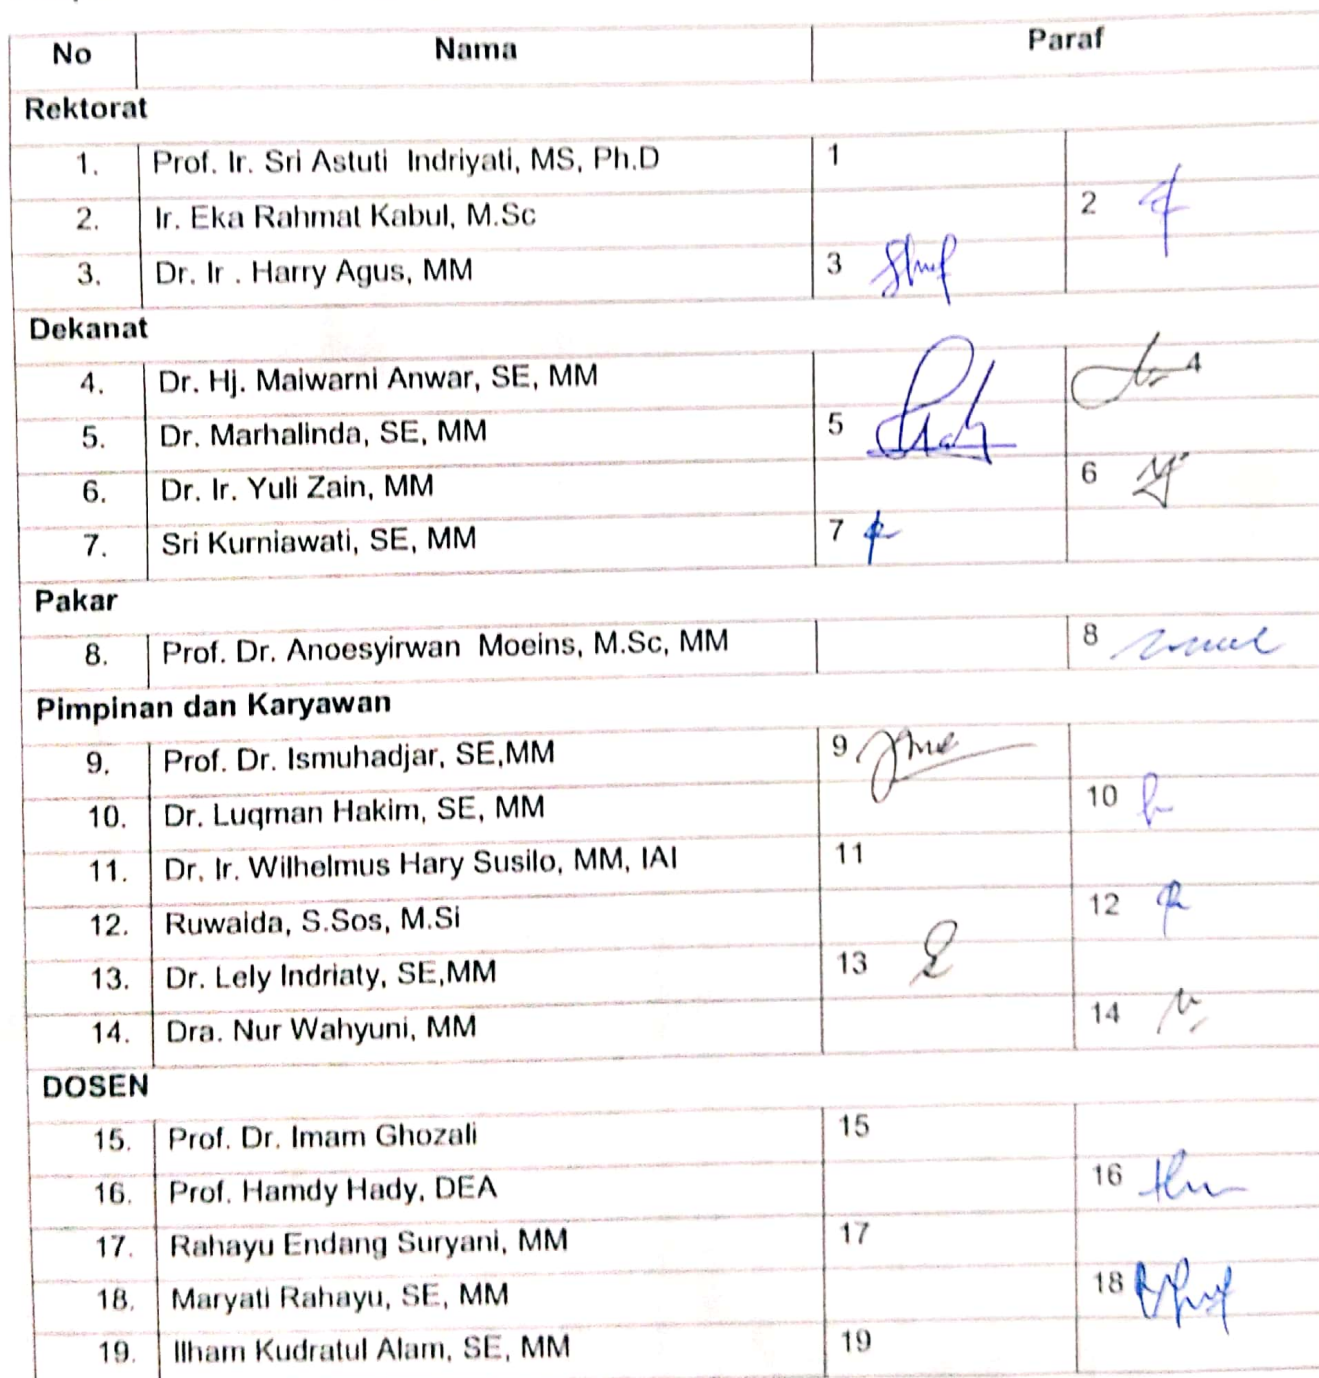 No Nama Paraf
Rektorat
1. Prof. Ir. Sri Astuti Indriyati, MS, Ph.D 1
2. Ir. Eka Rahmat Kabul, M.Sc 2
3. Dr. Ir . Harry Agus, MM 3
Dekanat
4. Dr. Hj. Maiwarni Anwar, SE, MM 4
5. Dr. Marhalinda, SE, MM 5
6. Dr. Ir. Yuli Zain, MM 6
7. Sri Kurniawati, SE, MM 7
Pakar
8. Prof. Dr. Anoesyirwan Moeins, M.Sc, MM 8
Pimpinan dan Karyawan
9. Prof. Dr. Ismuhadjar, SE,MM 9
10. Dr. Luqman Hakim, SE, MM 10
11. Dr. Ir. Wilhelmus Hary Susilo, MM, IAI 11
12. Ruwaida, S.Sos, M.Si 12
13. Dr. Lely Indriaty, SE,MM 13
14. Dra. Nur Wahyuni, MM 14
DOSEN
15. Prof. Dr. Imam Ghozali 15
16. Prof. Hamdy Hady, DEA 16
17. Rahayu Endang Suryani, MM 17
18. Maryati Rahayu, SE, MM 18
19. Ilham Kudratul Alam, SE, MM 19